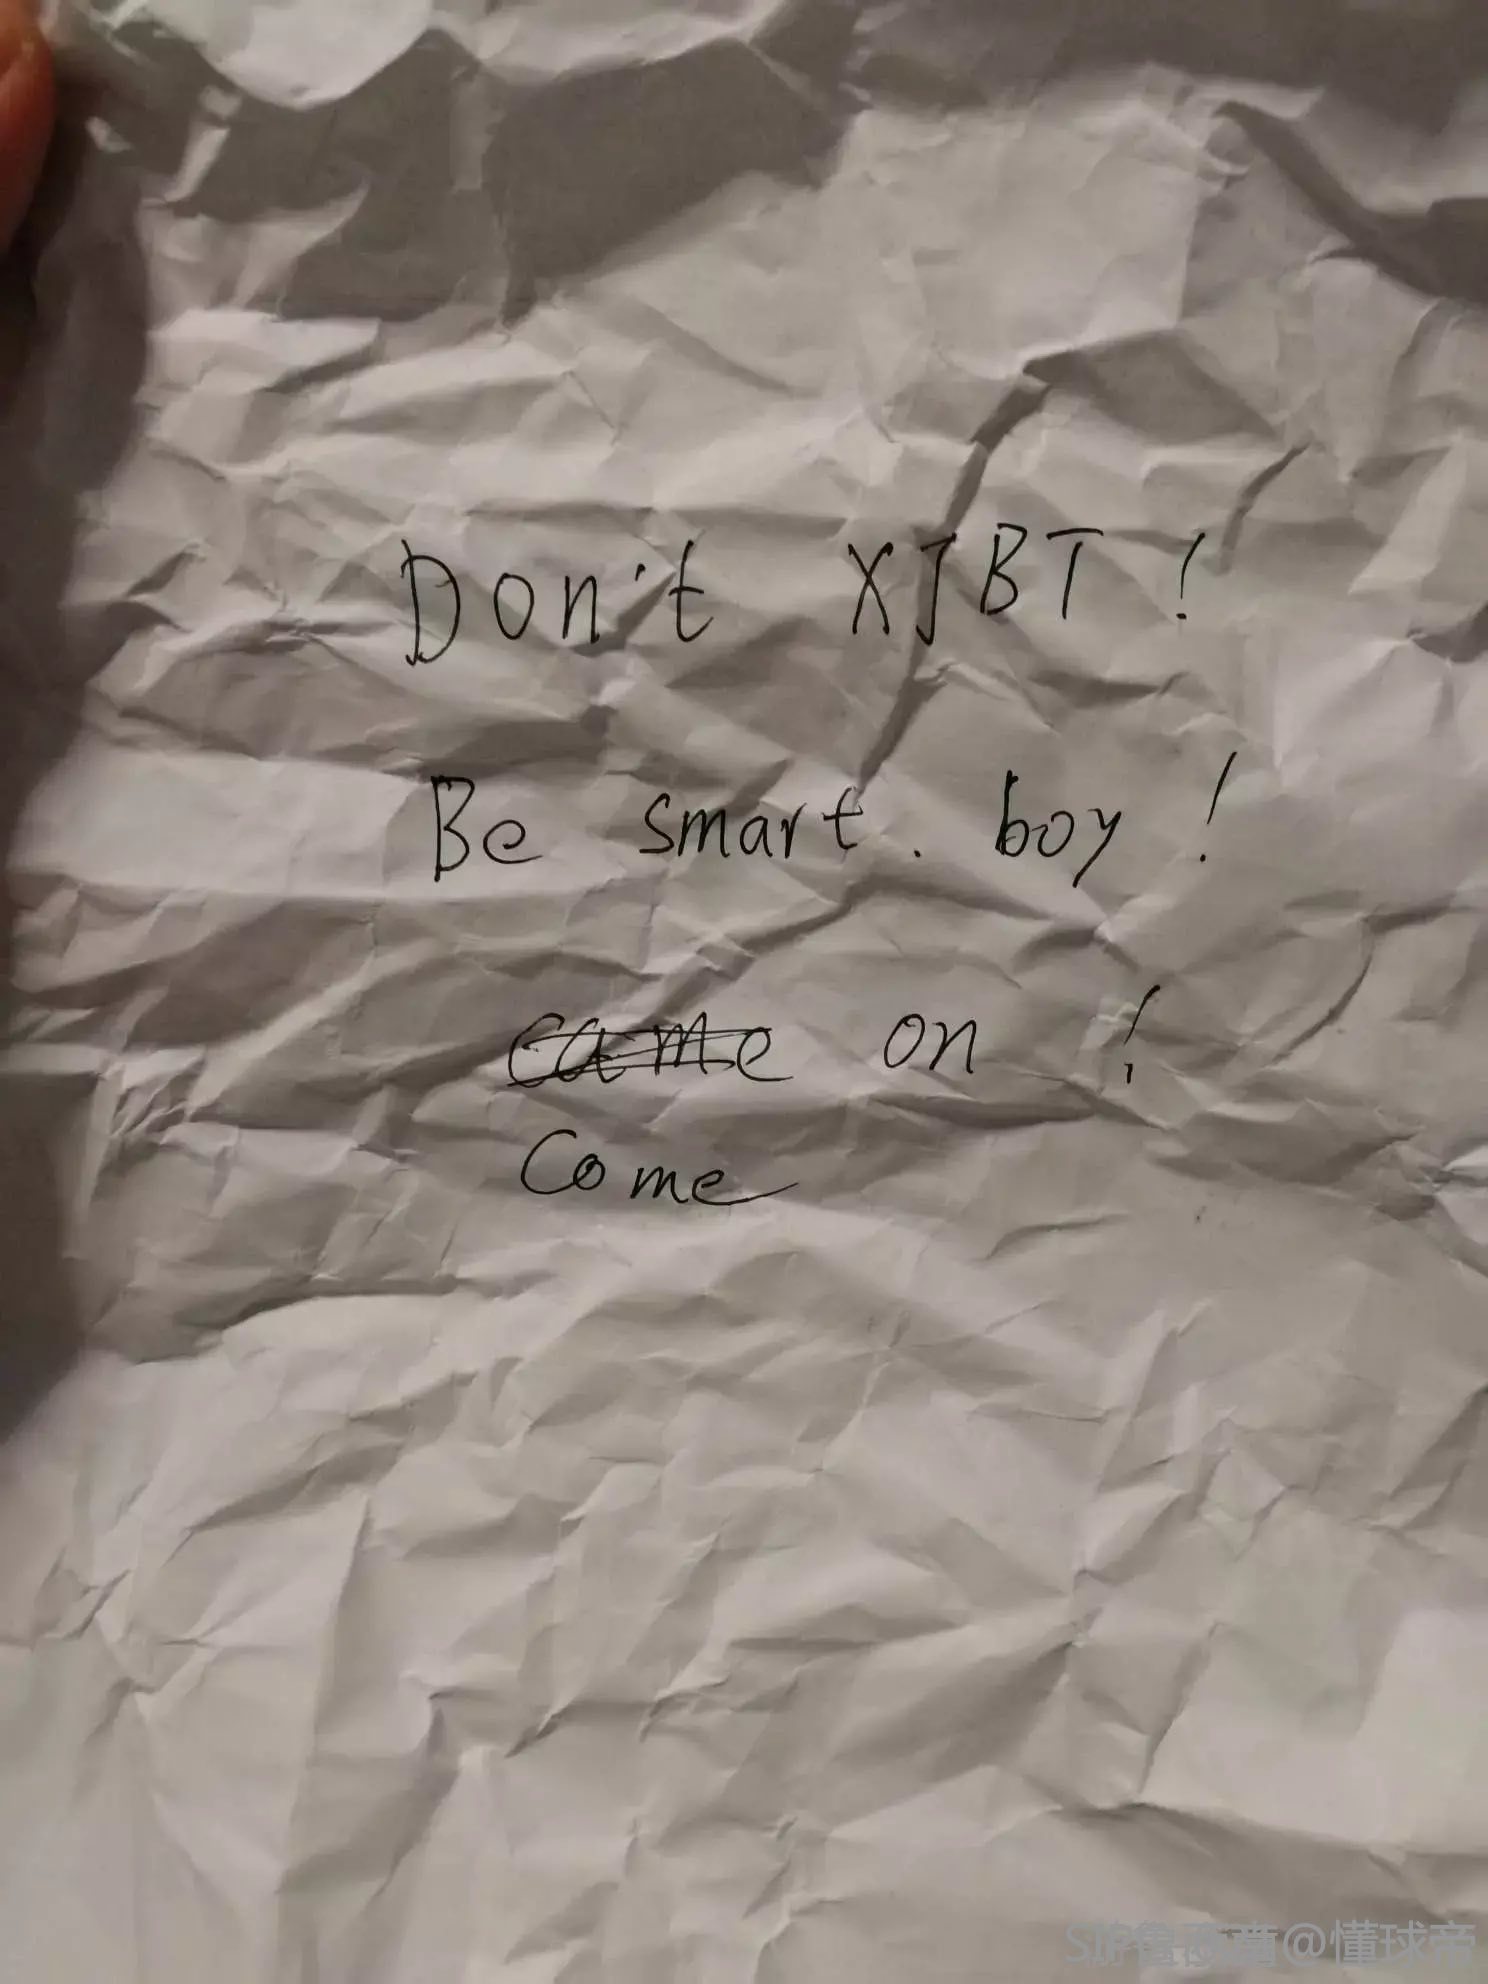 Don't XJBT!
Be smart. boy!
came on!
Come
@懂球帝